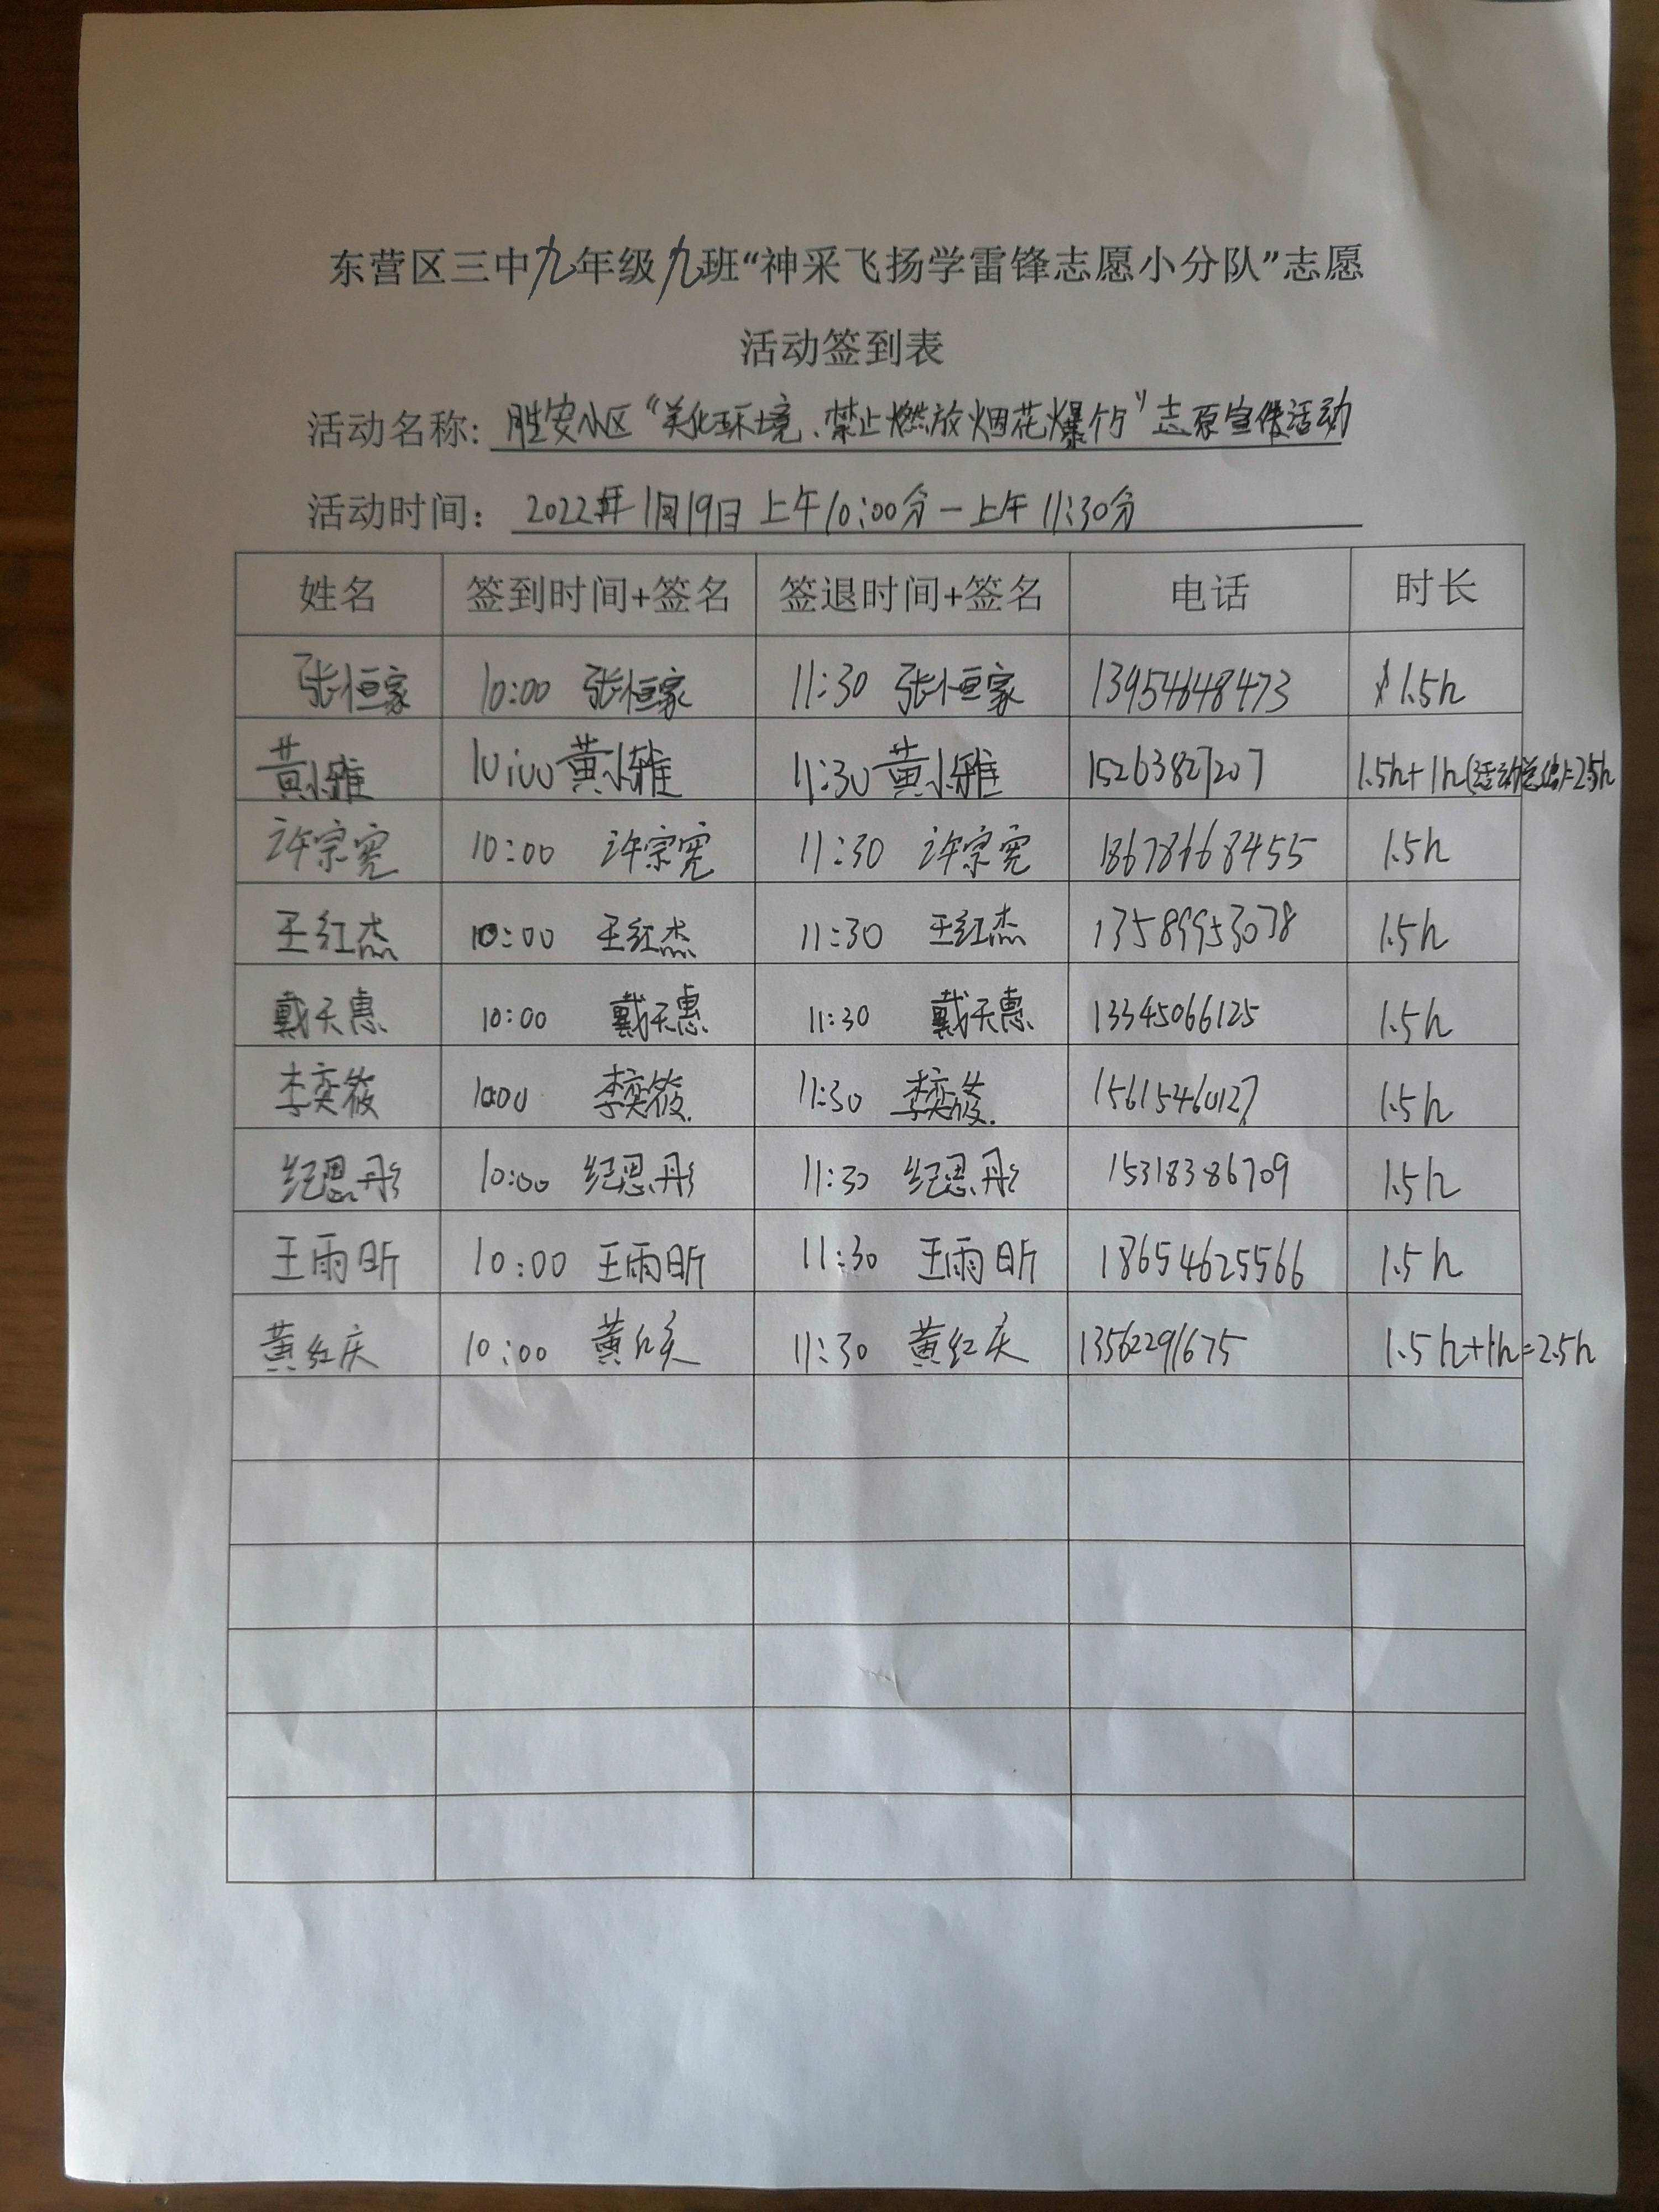 东营区三中九年级九班“神采飞扬学雷锋志愿小分队”志愿
活动签到表
活动名称: 胜安小区“美化环境、禁止燃放烟花爆竹”志愿宣传活动
活动时间: 2022年1月19日 上午10:00分－上午11:30分
姓名 签到时间+签名 签退时间+签名 电话 时长
张恒家 10:00 张恒家 11:30 张恒家 13954648473 1.5h
黄小雅 10:00 黄小雅 11:30 黄小雅 15263827207 1.5h+1h(活动总结)=2.5h
许宗宪 10:00 许宗宪 11:30 许宗宪 18678668455 1.5h
王红杰 10:00 王红杰 11:30 王红杰 13589953078 1.5h
戴天惠 10:00 戴天惠 11:30 戴天惠 13345066125 1.5h
李奕筱 10:00 李奕筱 11:30 李奕筱 15615460127 1.5h
纪恩彤 10:00 纪恩彤 11:30 纪恩彤 15318386709 1.5h
王雨昕 10:00 王雨昕 11:30 王雨昕 18654625566 1.5h
黄红庆 10:00 黄红庆 11:30 黄红庆 13562291675 1.5h+1h=2.5h